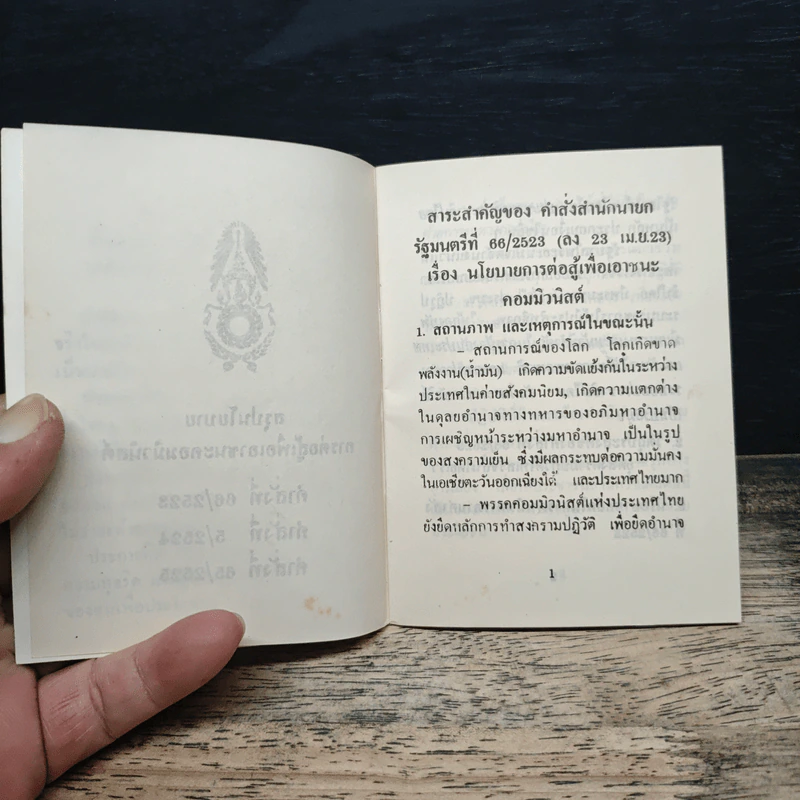 สรุปนโยบาย
การต่อสู้เพื่อเอาชนะคอมมิวนิสต์
คำสั่งที่ 66/2523
คำสั่งที่ 5/2524
คำสั่งที่ 65/2525
สาระสำคัญของ คำสั่งสำนักนายก
รัฐมนตรีที่ 66/2523 (ลง 23 เม.ย.23)
เรื่อง นโยบายการต่อสู้เพื่อเอาชนะ
คอมมิวนิสต์
1. สถานภาพ และเหตุการณ์ในขณะนั้น
– สถานการณ์ของโลก โลกเกิดขาด
พลังงาน(น้ำมัน) เกิดความขัดแย้งกันในระหว่าง
ประเทศในค่ายสังคมนิยม, เกิดความแตกต่าง
ในดุลยอำนาจทางทหารของอภิมหาอำนาจ
การเผชิญหน้าระหว่างมหาอำนาจ เป็นในรูป
ของสงครามเย็น ซึ่งมีผลกระทบต่อความมั่นคง
ในเอเชียตะวันออกเฉียงใต้ และประเทศไทยมาก
– พรรคคอมมิวนิสต์แห่งประเทศไทย
ยังยึดหลักการทำสงครามปฏิวัติ เพื่อยึดอำนาจ
1